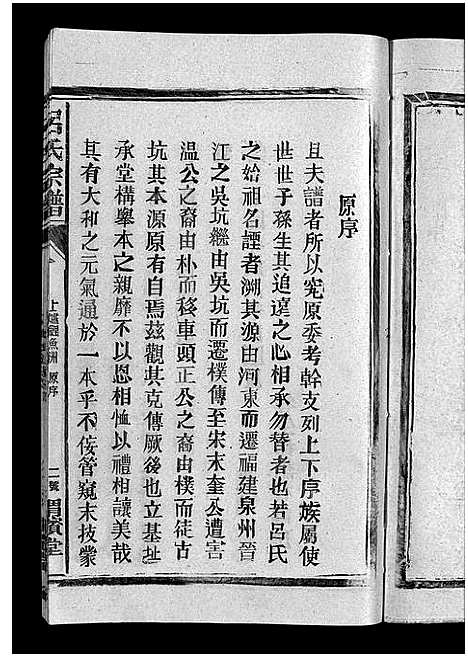 原序
且夫譜者所以究原委考幹支列上下序族屬使
世世子孫生其追遠之心相承勿替者也呂氏
之始祖名諲者溯其源由河東而遷福建泉州晉
江之吳坑繼由吳坑而遷樸傳至宋末奎公遭害
溫公之裔由朴而移車頭正公之裔由樸而徒古
坑其本源原有自焉茲觀其克傳厥後也立基址
承堂構舉本之親靡不以恩相恤以禮相讓美哉
其有大和之元氣通於一本乎不侫管窺末技蒙
呂氏宗譜
原序
二號
渭濱堂